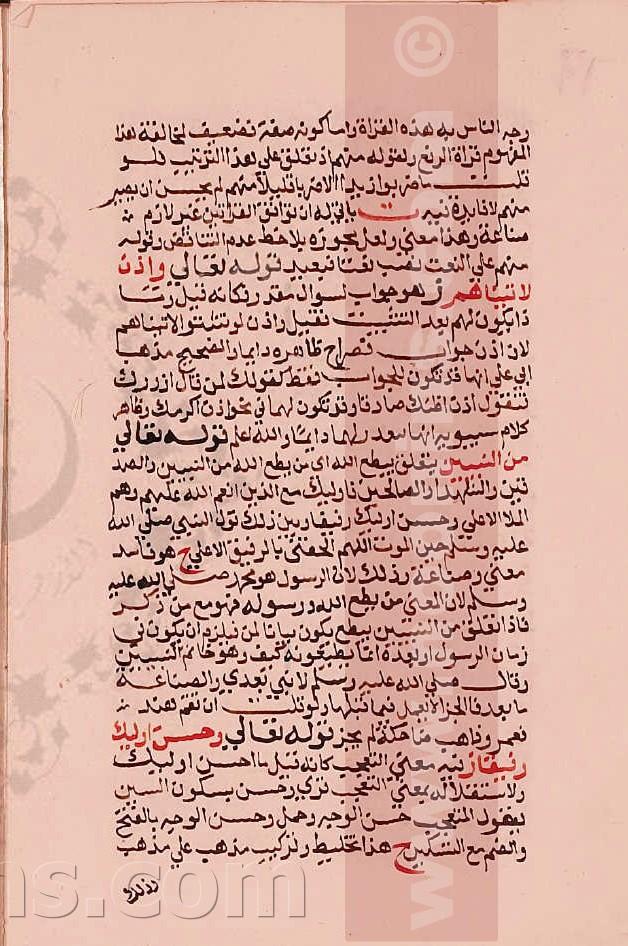 وجه الناس به هذه القراة واما كونه صفة تضعيف لمخالفة هذا
المفهوم قراة الرفع وبقوله منهم اذ تعلق علي هذا الترتيب فلو
قلت ما ضربوا زيدا الا ضربا قليلا منهم لم يحسن ان يصير
منهم لا فايدة فيه ت باقوله ان توافق القراتين غير لازم
صناعة وهذا معني ولعل مجوزه يلاحظ عدم التناقض وقوله
منهم علي النعت نصب نعتا فبعيد قوله تعالي واذن
لاتيناهم ز وهو جواب لسوال مقدر وكانه قيل وما
ذا يكون لهم بعد التثبيت فقيل واذن لو ثبتوا لاتيناهم
لان اذن جواب وجزاح ظاهره دايما والصحيح مذهب
ابي علي انها قد تكون للجواب فقط كقولك لمن قال ازورك
فتقول اذن اظنك صادقا وقد تكون لهما في نحو اذن اكرمك وظاهر
كلام سيبويه انها بعد لهما دايما والله اعلم قوله تعالي
من النبيين يتعلق بيطع الله اي من يطع الله من النبيين والصد
يقين والشهدا والصالحين فاوليك مع الذين انعم الله عليهم وهم
الملا الاعلي وحسن اوليك رفيقا ويبين ذلك قول النبي صلي الله
عليه وسلم حين الموت اللهم الحقني بالرفيق الاعلي ح هو فاسد
معني وصناعة وذلك لان الرسول هو محمد صلي الله عليه
وسلم لان المعني من يطع الله ورسوله فهو مع من ذكر
فاذا تعلق من النبيين بيطع يكون بيانا لمن فيلزم ان يكون في
زمان الرسول او بعده انبيا يطيعونه كيف وهو خاتم النبيين
وقال صلي الله عليه وسلم لا نبي بعدي والصناعة
ما بعد فا الجزا لا يعمل فيما قبلها ولو قلت ان تقم هند
فعمرو ذاهب ضاحكة لم يجز قوله تعالي وحسن اوليك
رفيقا ز فيه معني التعجب كانه قيل ما احسن اوليك
ولاستقلاله بمعني التعجب قري وحسن بسكون السين
يقول المتعجب حسن الوجه وجهك وحسن الوجه بالفتح
والضم مع التسكين ح هذا تخليط وتركيب مذهب علي مذهب
www.
ns.com
©